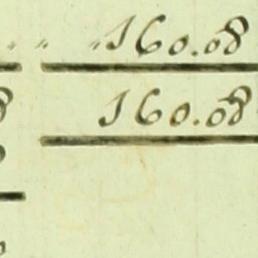 " " " 160.08
8 160.08